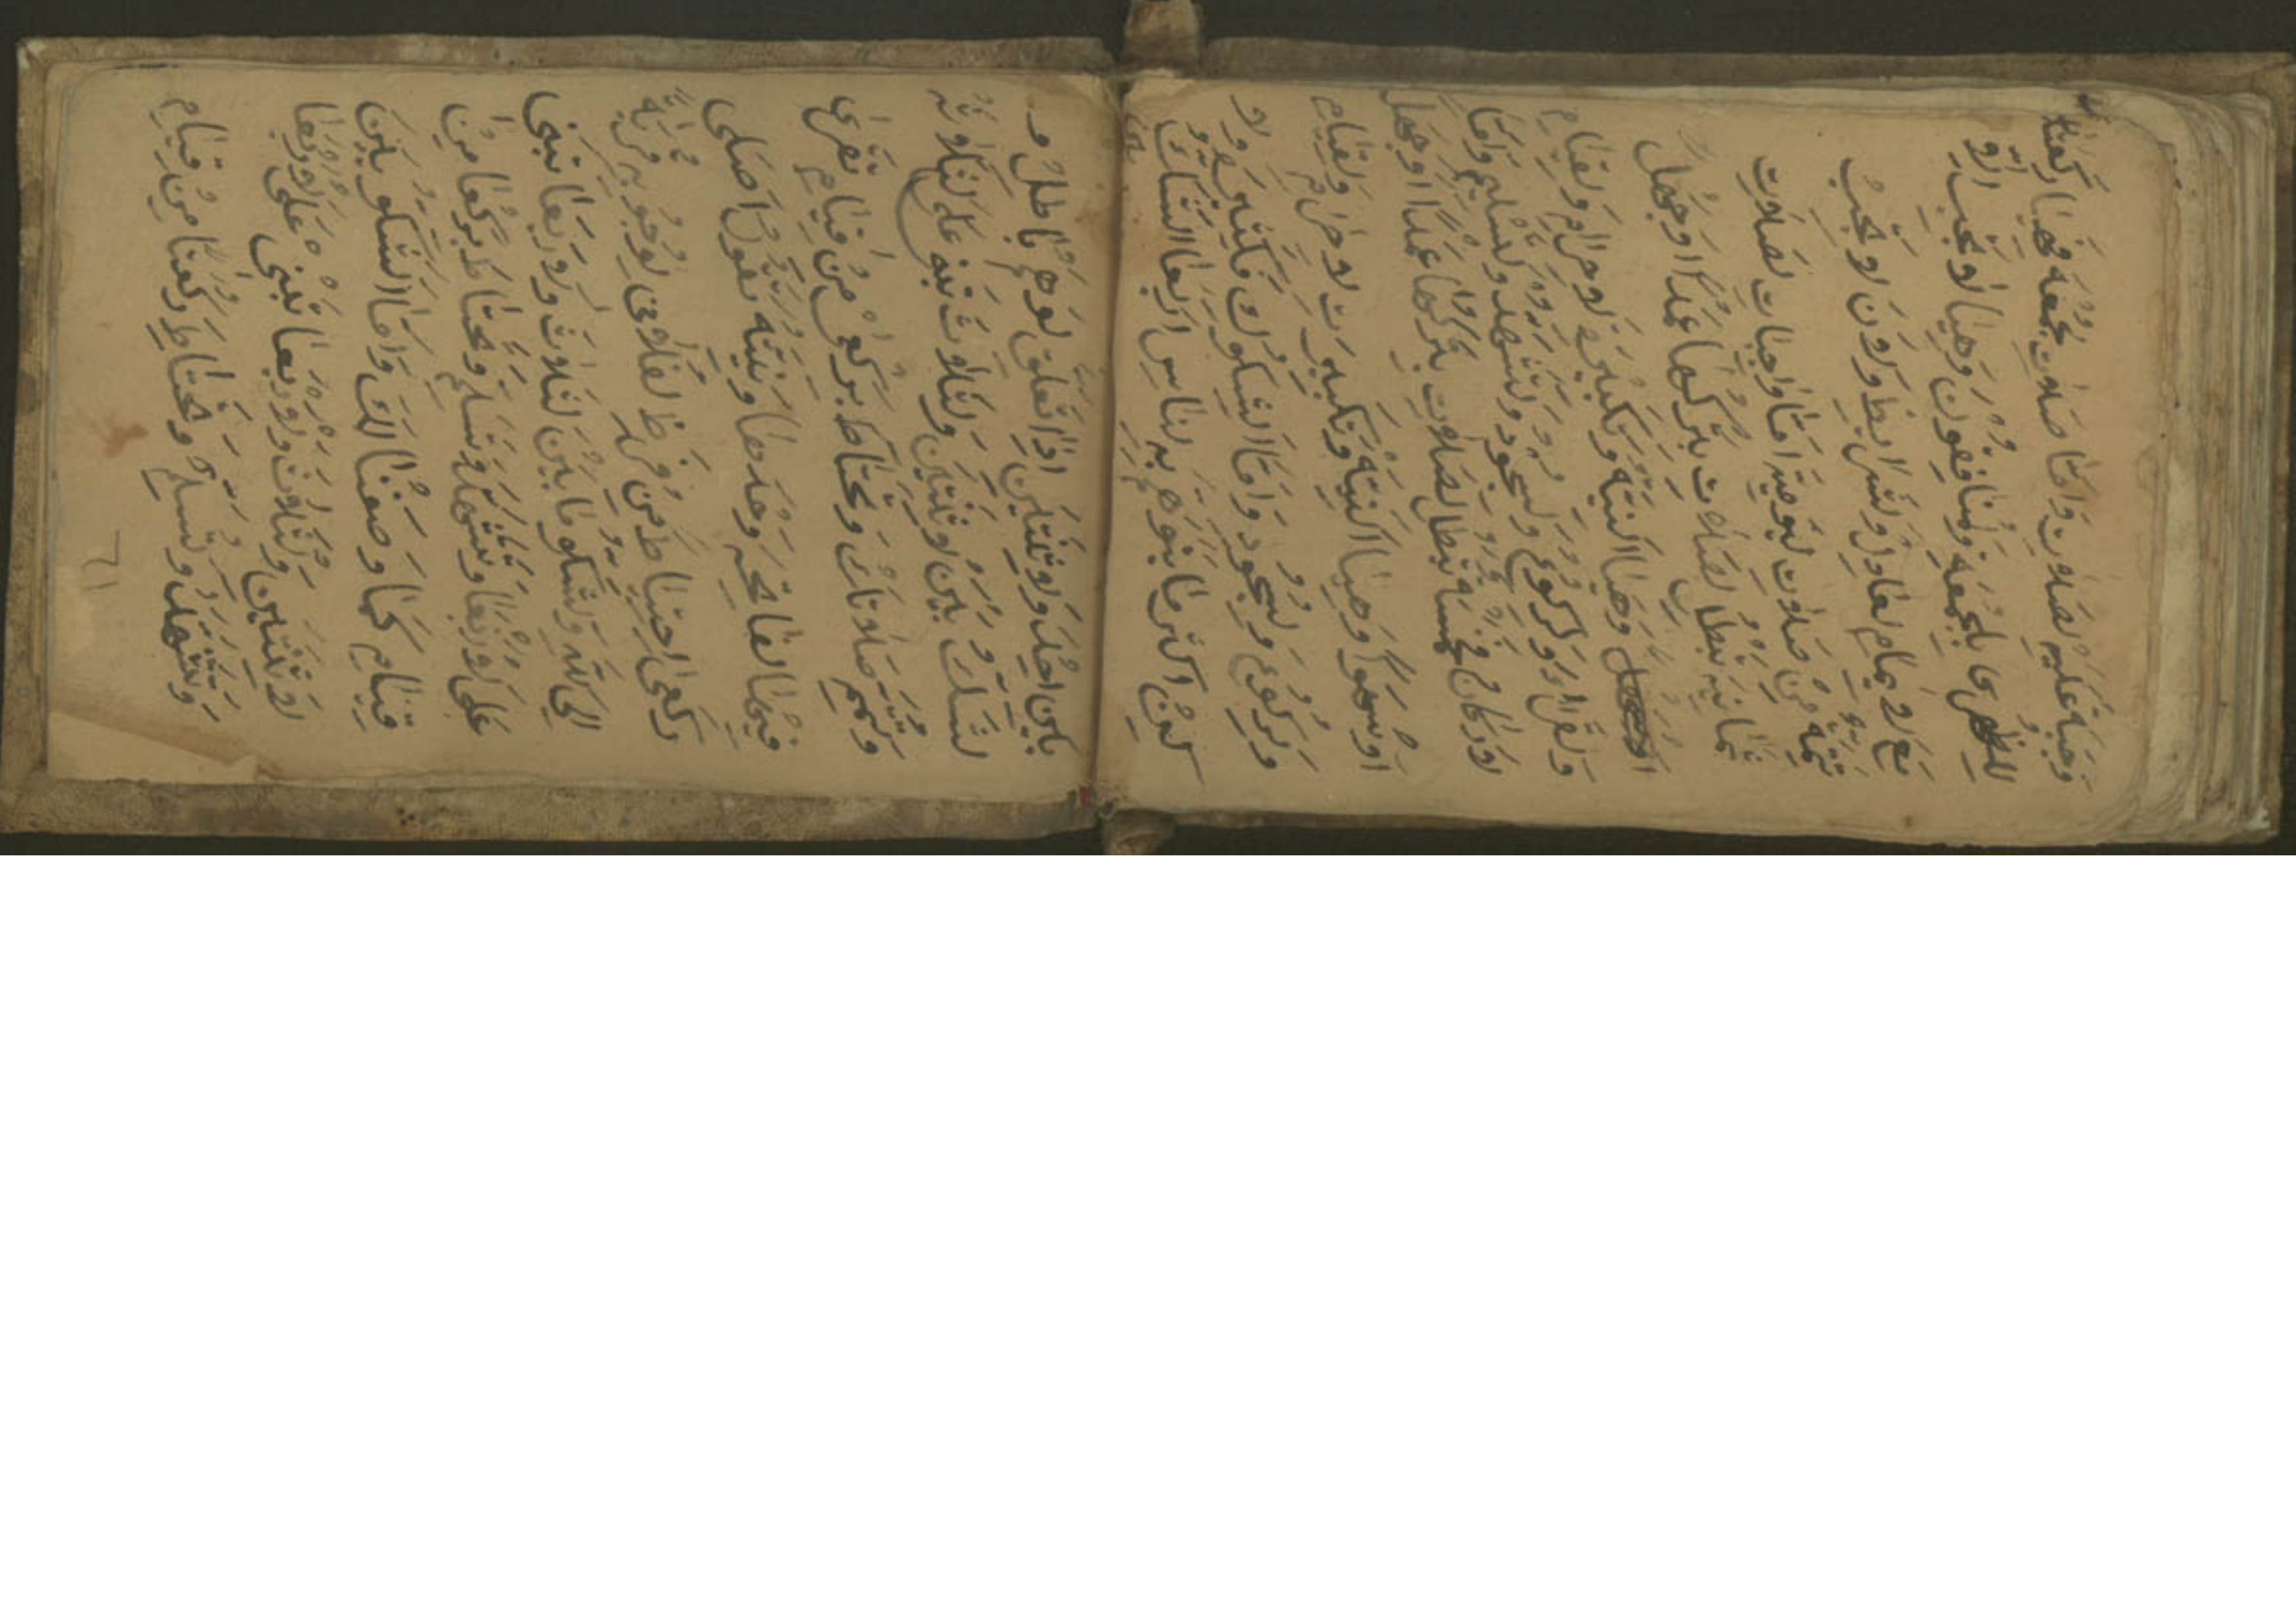 وَجَبَة عليهم لصلات واما صلات جمعه فهيا ركعتا
حا بلجمعة ولمنافقون وهيا لو تجب الو
مع لا يمام لعادل وشرايط تجب
تتمه من صلات ليوميه اما واجبات لصلات
ثمانيه يبطل لصلات بتركها عمدا او جهل
وهيا النيته وتكبيره لاحرام ولقيام
ولقراه ولركوع ولسجود ولتشهد ولتسليم واما
لاركان فخمسة تبطل لصلات بتركها عمدا او جهل
او سهوا وهيا النيته وتكبيرت لاحرام ولقيام
ولركوع ولسجود واما الشكوك فكثيره ولا
كن اكثر ما به لناس اربعا الشك
بين احد ولوثنتين اذا تعلق لوهم باطل و
لشك بين لوثنتين ولثلاث تبنه على
وتتمم صلاتك وتحتاط بركعن من قيام تقرى
فيها لفاتحه وحدها ونيته تقول اصلى
ركعى احتياط من فرظ لفلانى لوجوبه قربة
الى الله ولشكو ما بين لثلاث ولاربعا تبنى
على لاربعا وتتشهد وتسلم وتحتاط بركعا من
قيام كما وصفنا لك واما الشكو بين
لاوثنتين ولثلاث ولاربعا تبنى على لاربعا
وتتشهد وتسلم وتحتاط ركعتا من قيام